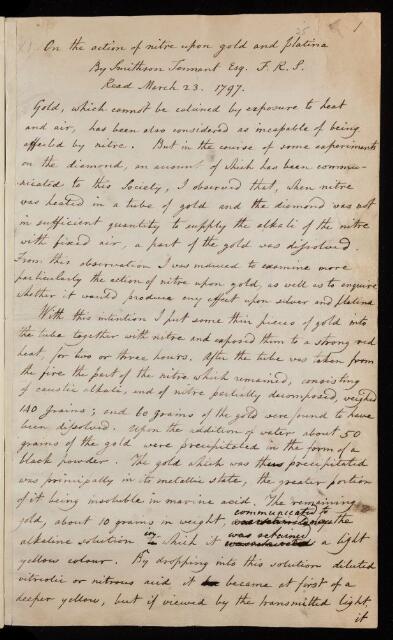 1
On the action of nitre upon gold and platina
By Smithson Tennant Esq. F.R.S.
Read March 23. 1797.
Gold, which cannot be calcined by exposure to heat
and air, has been also considered as incapable of being
affected by nitre. But in the course of some experiments
on the diamond, an account of which has been commu-
nicated to this Society, I observed that, when nitre
was heated in a tube of gold and the diamond was not
in sufficient quantity to supply the alkali of the nitre
with fixed air, a part of the gold was dissolved.
From this observation I was induced to examine more
particularly the action of nitre upon gold, as well as to enquire
whether it would produce any effect upon silver and platina
With this intention I put some thin pieces of gold into
the tube together with nitre and exposed them to a strong red
heat, for two or three hours. After the tube was taken from
the fire the part of the nitre which remained, consisting
of caustic alkali, and of nitre partially decomposed, weighed
140 grains; and 60 grains of the gold were found to have
been dissolved. Upon the addition of water about 50
grains of the gold were precipitated in the form of a
black powder. The gold which was thus precipitated
was principally in its metallic state, the greater portion
of it being insoluble in marine acid. The remaining
gold, about 10 grains, in weight, communicated to the
alkaline solution in which it was retained a light
yellow colour. By dropping into this solution diluted
vitriolic or nitrous acid it became at first of a
deeper yellow, but if viewed by the transmitted light,
it